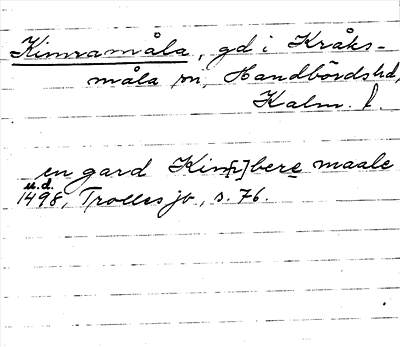 Kimramåla, gd i Kråks-
måla sn, Handbörds hd,
Kalm. l.
en gard Kim[r]bere maale
u.d.
1498, Trolles jb, s. 76.